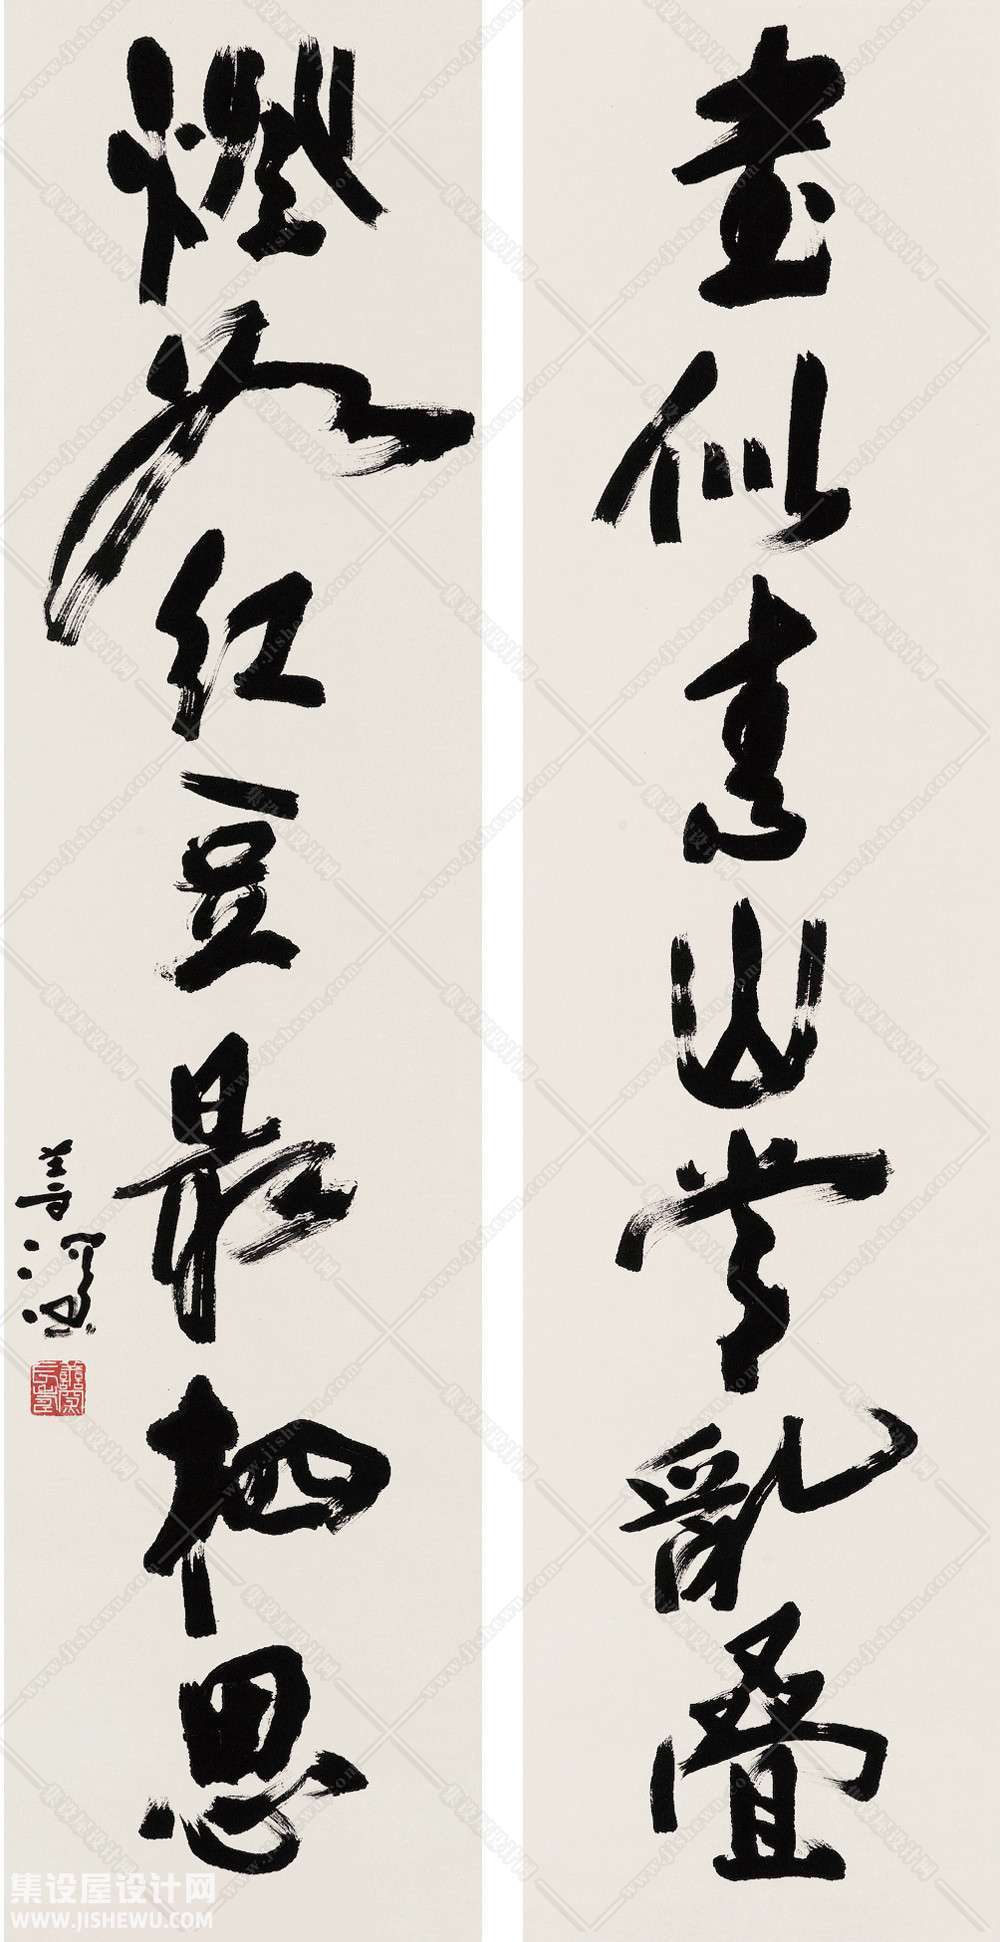 書似青山常亂疊
燈如紅豆最相思
集设屋设计网
WWW.JISHEWU.COM